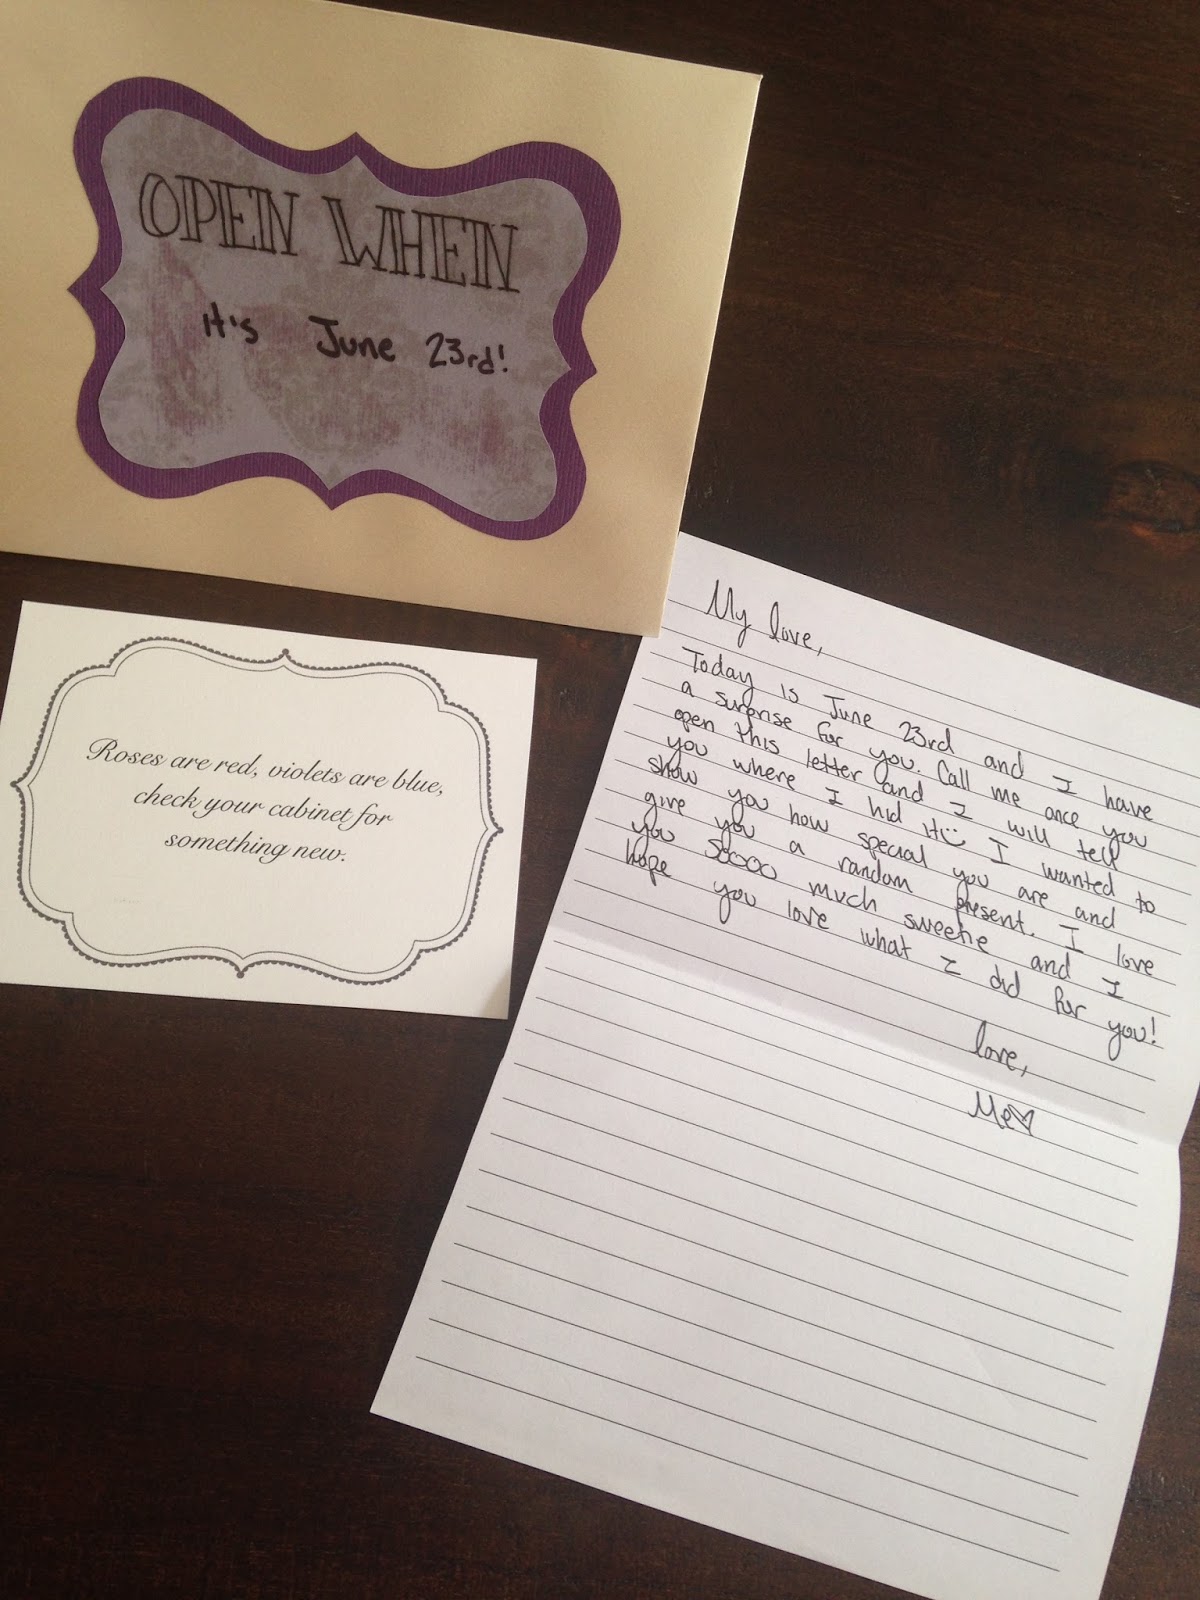 OPEN WHEN
it's June 23rd!
Roses are red, violets are blue,
check your cabinet for
something new.
My love,
Today is June 23rd and I have
a surprise for you. Call me once you
open this letter and I will tell
you where I hid it☺ I wanted to
show you how special you are and
give you a random present. I love
you soooo much sweetie and I
hope you love what I did for you!
love,
Me♡